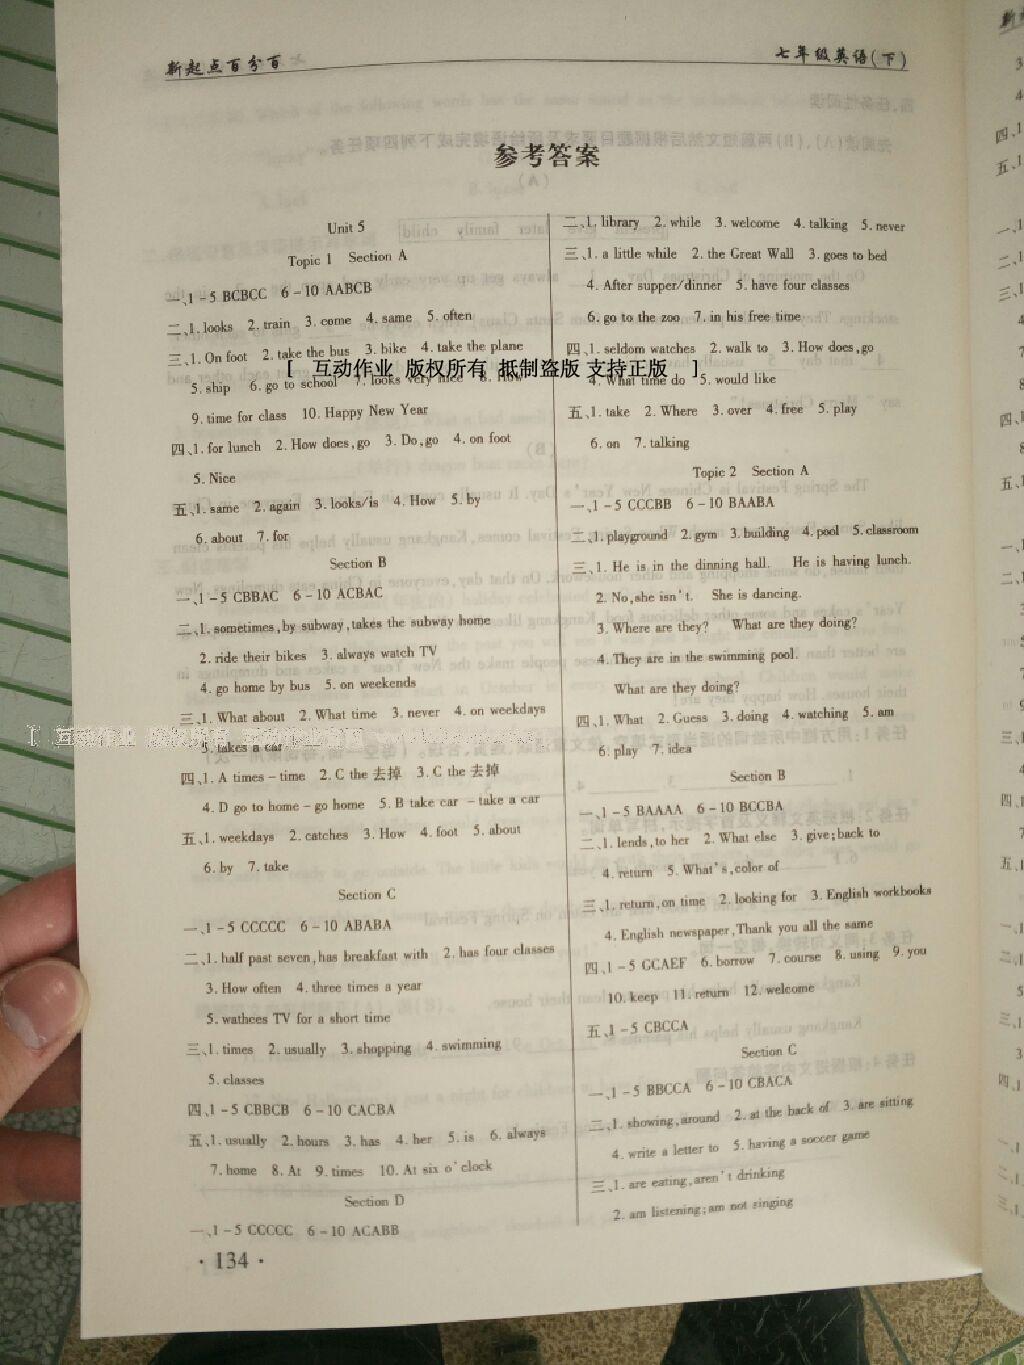 新起点百分百
七年级英语(下)
参考答案
Unit 5
Topic 1 Section A
一、1-5 BCBCC 6-10 AABCB
二、1. looks 2. train 3. come 4. same 5. often
三、1. On foot 2. take the bus 3. bike 4. take the plane
[ 互动作业 版权所有 抵制盗版 支持正版 ]
5. ship 6. go to school 7. looks very nice 8. How
9. time for class 10. Happy New Year
四、1. for lunch 2. How does,go 3. Do,go 4. on foot
5. Nice
五、1. same 2. again 3. looks/is 4. How 5. by
6. about 7. for
Section B
一、1-5 CBBAC 6-10 ACBAC
二、1. sometimes,by subway,takes the subway home
2. ride their bikes 3. always watch TV
4. go home by bus 5. on weekends
三、1. What about 2. What time 3. never 4. on weekdays
[ 互动作业
5. takes a car
四、1. A times-time 2. C the 去掉 3. C the 去掉
4. D go to home-go home 5. B take car -take a car
五、1. weekdays 2. catches 3. How 4. foot 5. about
6. by 7. take
Section C
一、1-5 CCCCC 6-10 ABABA
二、1. half past seven,has breakfast with 2. has four classes
3. How often 4. three times a year
5. wathees TV for a short time
三、1. times 2. usually 3. shopping 4. swimming
5. classes
四、1-5 CBBCB 6-10 CACBA
五、1. usually 2. hours 3. has 4. her 5. is 6. always
7. home 8. At 9. times 10. At six o'clock
Section D
一、1-5 CCCCC 6-10 ACABB
· 134 ·
二、1. library 2. while 3. welcome 4. talking 5. never
三、1. a little while 2. the Great Wall 3. goes to bed
4. After supper/dinner 5. have four classes
6. go to the zoo 7. in his free time
四、1. seldom watches 2. walk to 3. How does,go
4. What time do 5. would like
五、1. take 2. Where 3. over 4. free 5. play
6. on 7. talking
Topic 2 Section A
一、1-5 CCCBB 6-10 BAABA
二、1. playground 2. gym 3. building 4. pool 5. classroom
三、1. He is in the dinning hall. He is having lunch.
2. No,she isn't. She is dancing.
3. Where are they? What are they doing?
4. They are in the swimming pool.
What are they doing?
四、1. What 2. Guess 3. doing 4. watching 5. am
6. play 7. idea
Section B
一、1-5 BAAAA 6-10 BCCBA
二、1. lends,to her 2. What else 3. give;back to
4. return 5. What's,color of
三、1. return,on time 2. looking for 3. English workbooks
4. English newspaper,Thank you all the same
四、1-5 GCAEF 6. borrow 7. course 8. using 9. you
10. keep 11. return 12. welcome
五、1-5 CBCCA
Section C
一、1-5 BBCCA 6-10 CBACA
二、1. showing,around 2. at the back of 3. are sitting
4. write a letter to 5. having a soccer game
三、1. are eating,aren't drinking
2. am listening;am not singing